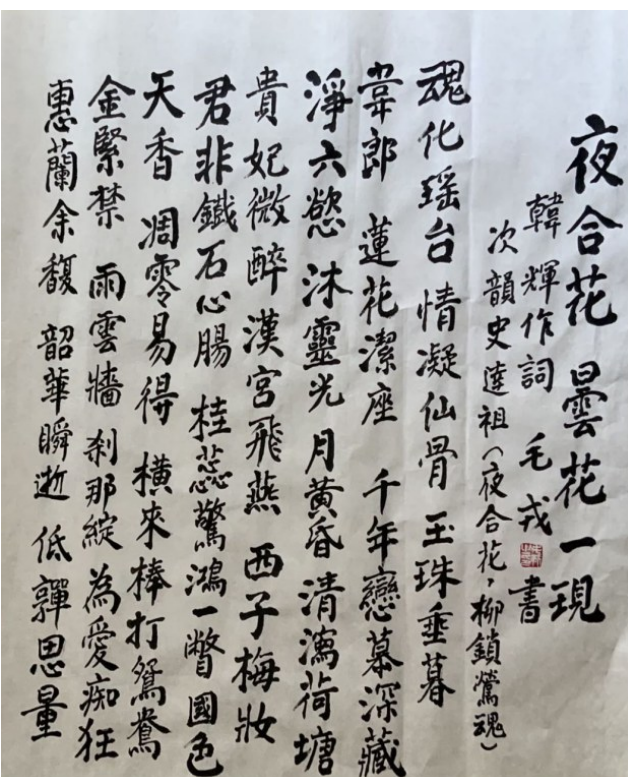 夜合花 曇花一現
韓輝作詞 毛戎 書
次韻史達祖（夜合花，柳鎖鶯魂）
魂化瑶台 情凝仙骨 玉珠垂暮
韋郎 蓮花潔座 千年戀慕深藏
淨六慾 沐靈光 月黃昏 清瀉荷塘
貴妃微醉 漢宮飛燕 西子梅妝
君非鐵石心腸 桂蕊驚鴻一瞥 國色
天香 凋零易得 橫來棒打鴛鴦
金緊禁 雨雲牆 剎那綻 為愛痴狂
惠蘭余馥 韶華瞬逝 低嚲思量